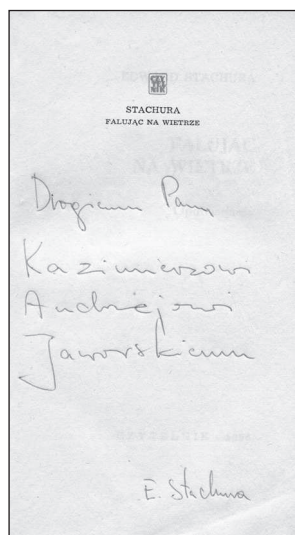 CZY
TEL
NIK
STACHURA
FALUJĄC NA WIETRZE
Drogiemu Panu
Kazimierzowi
Andrzejowi
Jaworskiemu
E. Stachura